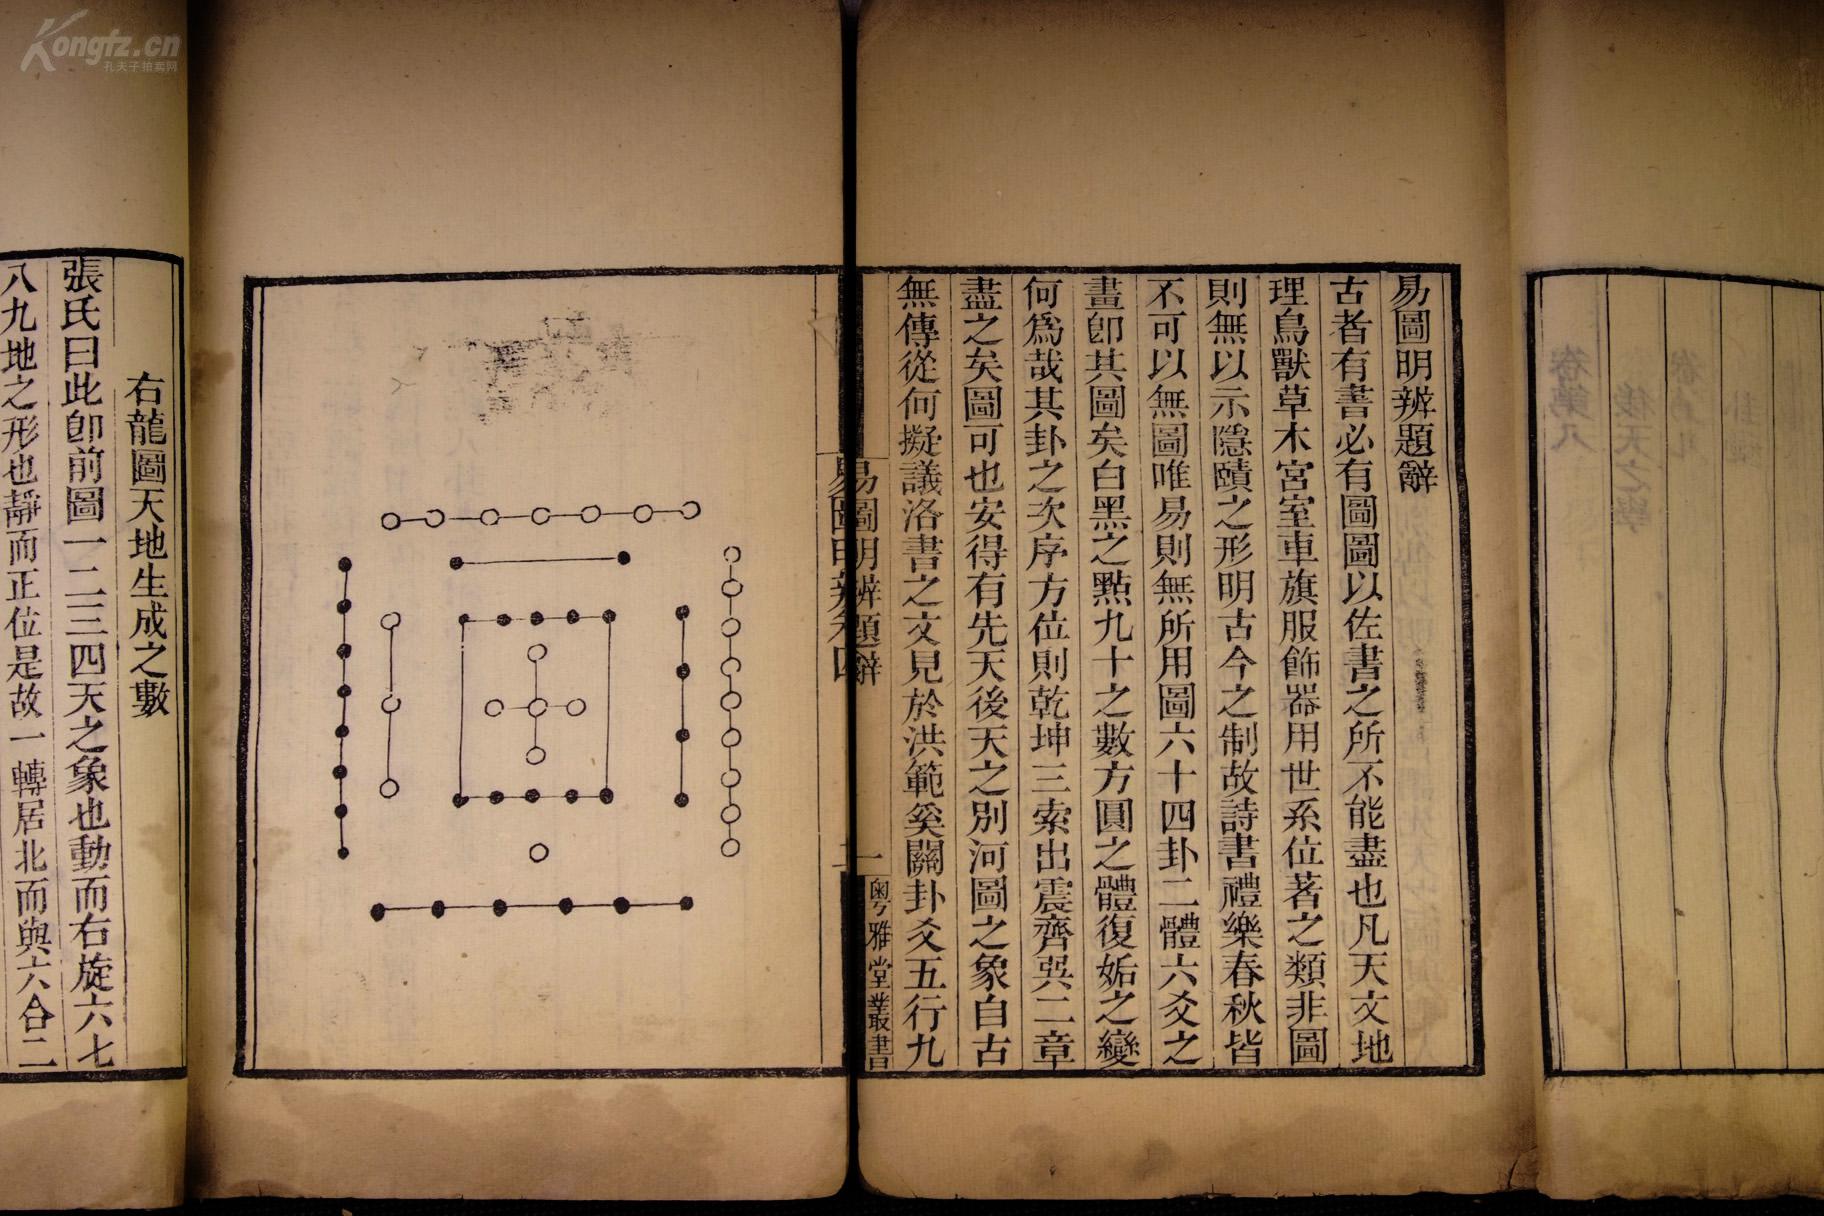 易圖明辨題辭
古者有書必有圖圖以佐書之所不能盡也凡天文地
理鳥獸草木宮室車旗服飾器用世系位著之類非圖
則無以示隱賾之形明古今之制故詩書禮樂春秋皆
不可以無圖唯易則無所用圖六十四卦二體六爻之
畫卽其圖矣白黑之點九十之數方圓之體復姤之變
何爲哉其卦之次序方位則乾坤三索出震齊巽二章
盡之矣圖可也安得有先天後天之別河圖之象自古
無傳從何擬議洛書之文見於洪範奚關卦爻五行九
易圖明辨題辭
一
粵雅堂叢書
右龍圖天地生成之數
張氏曰此卽前圖一二三四天之象也動而右旋六七
八九地之形也靜而正位是故一轉居北而與六合二
Kongfz.cn
孔夫子拍卖网